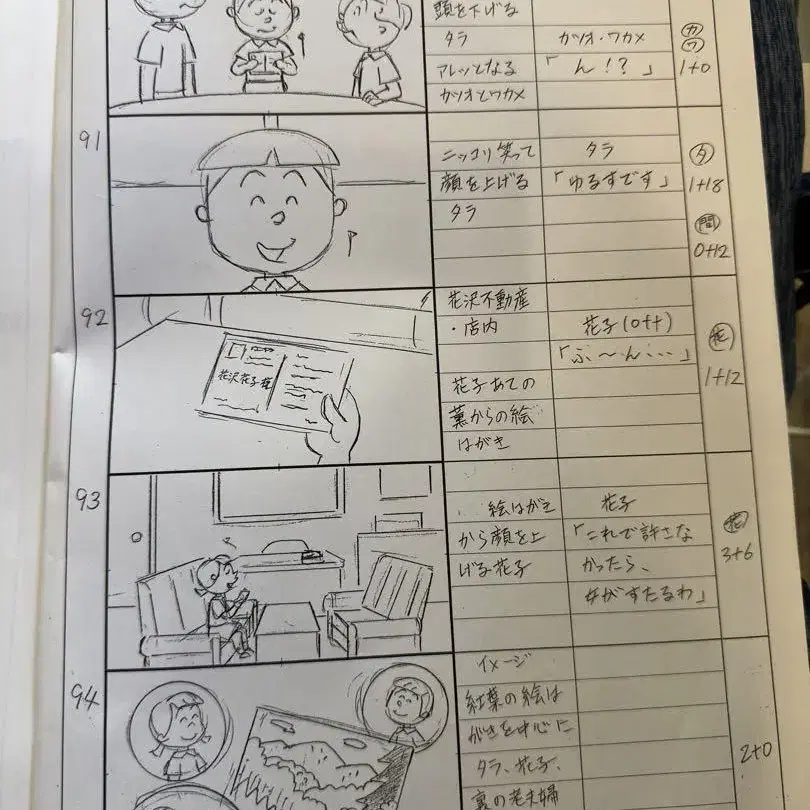 頭を下げる
タラ
カツオ・ワカメ
アレッとなる
「ん!?」
カツオとワカメ
カ
ワ
1+0
91
ニッコリ笑って
タラ
顔を上げる
「ゆるすです」
タラ
タ
1+18
間
0+12
92
花沢不動産
・店内
花子(off)
「ふ〜ん…」
花子あての
葉からの絵
はがき
花沢花子様
花
1+12
93
絵はがき
花子
から顔を上
「これで許さな
げる花子
かったら、
女がすたるわ」
花
3+6
94
イメージ
紅葉の絵は
がきを中心に
タラ、花子、
裏の老夫婦
2+0